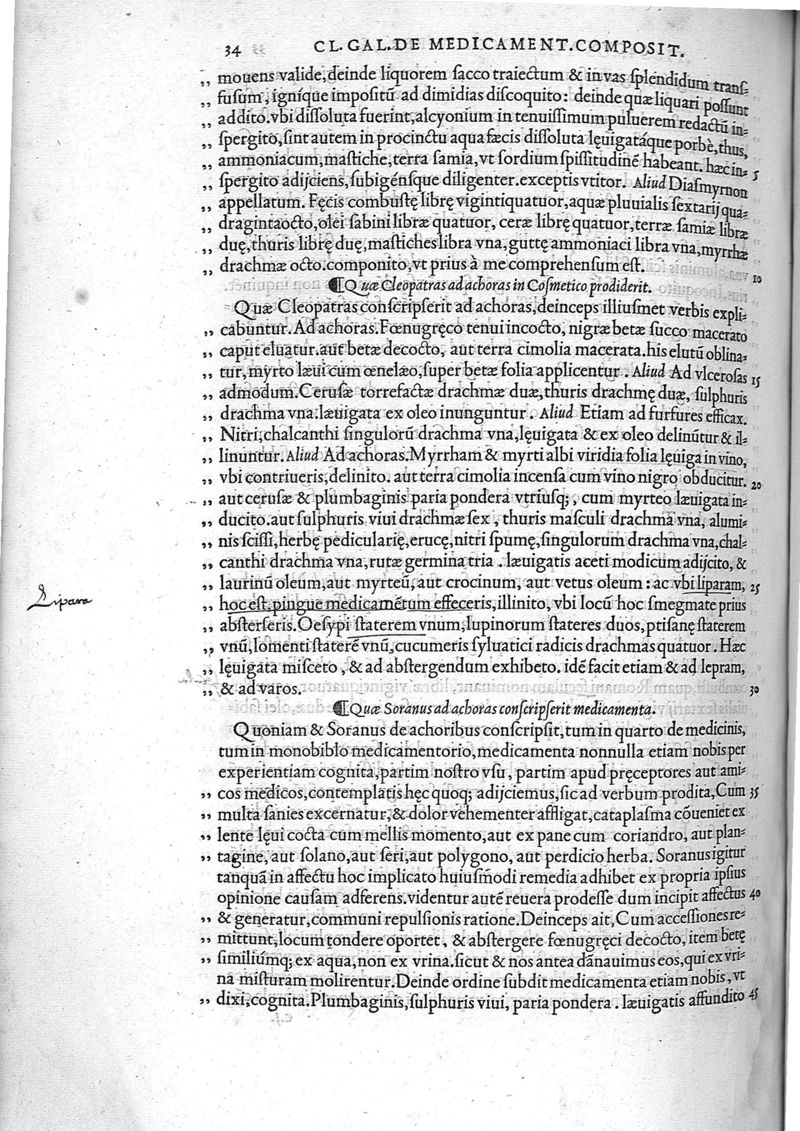 34 CL. GAL. DE MEDICAMENT. COMPOSIT.
„ mouens valide, deinde liquorem sacco traiectum & in vas splendidum trans-
„ fusum, igníque impositū ad dimidias discoquito: deinde quæ liquari possunt
„ addito. vbi dissoluta fuerint, alcyonium in tenuissimum puluerem redactū in-
„ spergito, sint autem in procinctu aqua fæcis dissoluta lęuigatáque porbè, thus,
„ ammoniacum, mastiche, terra samia, vt sordium spissitudinē habeant. hæc in- 5
„ spergito adijciens, subigénsque diligenter. exceptis vtitor. Aliud Diasmyrnon
„ appellatum. Fęcis combustę librę vigintiquatuor, aquæ pluuialis sextarij qua-
„ dragintaocto, olei sabini libræ quatuor, ceræ librę quatuor, terræ samiæ libræ
„ duę, thuris librę duę, mastiches libra vna, guttę ammoniaci libra vna, myrrhæ
„ drachmæ octo. componito, vt prius à me comprehensum est. 10
¶ Quæ Cleopatras ad achoras in Cosmetico prodiderit.
Quæ Cleopatras conscripserit ad achoras, deinceps illiusmet verbis expli-
„ cabuntur. Ad achoras. Fœnugręco tenui incocto, nigræ betæ succo macerato
„ caput eluatur. aut betæ decocto, aut terra cimolia macerata. his elutū oblina-
„ tur, myrto læui cum œnelæo, super betæ folia applicentur. Aliud Ad vlcerosas 15
„ admodum. Cerusæ torrefactæ drachmæ duæ, thuris drachmę duæ, sulphuris
„ drachma vna. læuigata ex oleo inunguntur. Aliud Etiam ad furfures efficax.
„ Nitri, chalcanthi singulorū drachma vna, lęuigata & ex oleo delinūtur & il-
„ linuntur. Aliud Ad achoras. Myrrham & myrti albi viridia folia lęuiga in vino,
„ vbi contriueris, delinito. aut terra cimolia incensa cum vino nigro obducitur. 20
„ aut cerusæ & plumbaginis paria pondera vtriusq;, cum myrteo læuigata in-
„ ducito. aut sulphuris viui drachmæ sex, thuris masculi drachma vna, alumi-
„ nis scissi, herbę pediculárię, erucę, nitri spumę, singulorum drachma vna, chal-
„ canthi drachma vna, rutæ germina tria. læuigatis aceti modicum adijcito, &
„ laurinū oleum, aut myrteū, aut crocinum, aut vetus oleum: ac vbi liparam, 25
Lipara
„ hoc est, pingue medicamētum effeceris, illinito, vbi locū hoc smegmate prius
„ absterseris. Oesypi staterem vnum, lupinorum stateres duos, ptisanę staterem
„ vnū, lomenti staterē vnū, cucumeris syluatici radicis drachmas quatuor. Hæc
„ lęuigata misceto, & ad abstergendum exhibeto. idē facit etiam & ad lepram,
„ & ad varos. 30
¶ Quæ Soranus ad achoras conscripserit medicamenta.
Quoniam & Soranus de achoribus conscripsit, tum in quarto de medicinis,
tum in monobiblo medicamentorio, medicamenta nonnulla etiam nobis per
experientiam cognita, partim nostro vsu, partim apud pręceptores aut ami-
„ cos medicos, contemplatis hęc quoq; adijciemus, sic ad verbum prodita, Cum 35
„ multa sanies excernatur, & dolor vehementer affligat, cataplasma cōueniet ex
„ lente lęui cocta cum mellis momento, aut ex pane cum coriandro, aut plan-
„ tagine, aut solano, aut seri, aut polygono, aut perdicio herba. Soranus igitur
tanquā in affectu hoc implicato huiusm̄odi remedia adhibet ex propria ipsius
opinione causam adferens. videntur autē reuera prodesse dum incipit affectus 40
„ & generatur, communi repulsionis ratione. Deinceps ait, Cum accessiones re-
„ mittunt, locum tondere oportet, & abstergere fœnugręci decocto, item betę
„ similiúmq; ex aqua, non ex vrina. sicut & nos antea dānauimus eos, qui ex vri-
na misturam molirentur. Deinde ordine subdit medicamenta etiam nobis, vt
„ dixi, cognita. Plumbaginis, sulphuris viui, paria pondera. læuigatis affundito 45